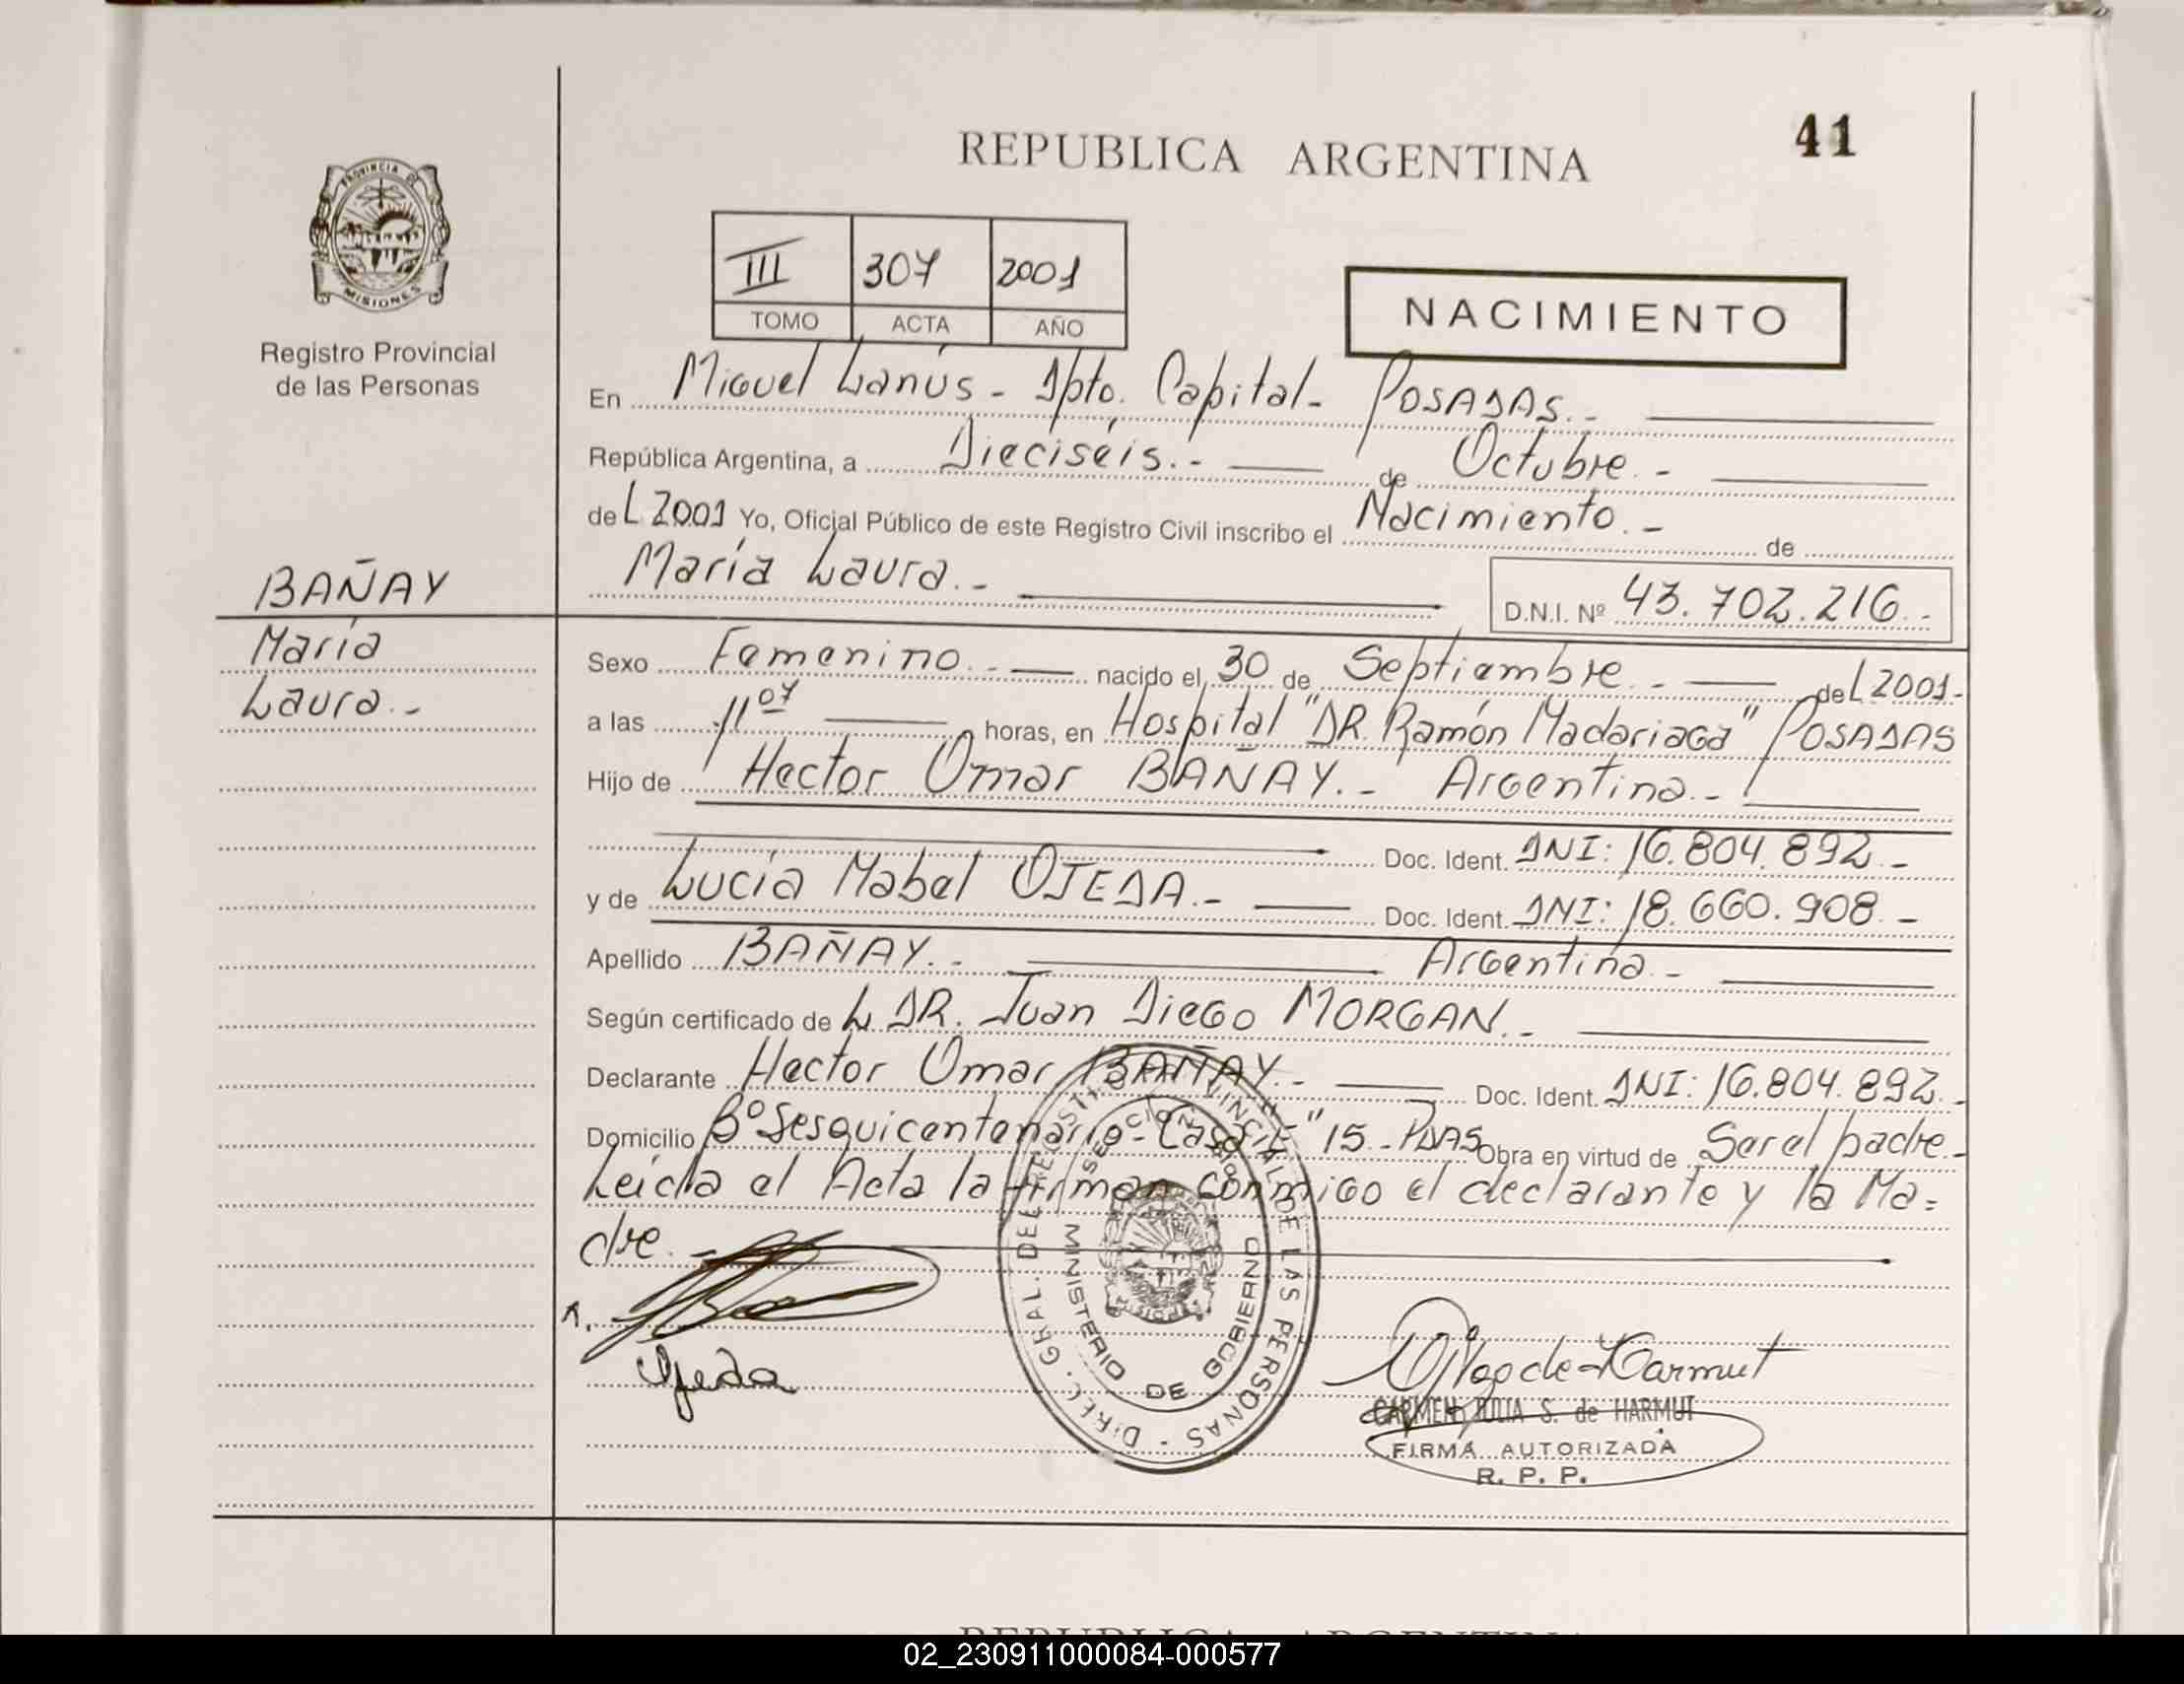 41
REPUBLICA ARGENTINA
PROVINCIA DE
MISIONES
Registro Provincial
de las Personas
III 307 2001
TOMO ACTA AÑO
NACIMIENTO
En Miguel Lanús - Dpto. Capital - POSADAS.-
República Argentina, a Dieciséis.- de Octubre.-
del 2001 Yo, Oficial Público de este Registro Civil inscribo el Nacimiento.- de
María Laura.-
D.N.I. Nº 43.702.216.-
BAÑAY
María
Laura.-
Sexo Femenino.- nacido el 30 de Septiembre.- del 2001-
a las 11 07 horas, en Hospital "DR. Ramón Madariaga" POSADAS
Hijo de Hector Omar BAÑAY.- Argentina.-
Doc. Ident. DNI: 16.804.892.-
y de Lucía Mabel OJEDA.- Doc. Ident. DNI: 18.660.908.-
Apellido BAÑAY.- Argentina.-
Según certificado del DR. Juan Diego MORGAN.-
Declarante Hector Omar BAÑAY.- Doc. Ident. DNI: 16.804.892.-
Domicilio Bº Sesquicentenario - Casa 15.- PDAS Obra en virtud de Ser el padre.-
Leída el Acta la firman conmigo el declarante y la Ma=
dre.-
Ojeda
DIREC. GRAL. DEL REGISTRO PROVINCIAL DE LAS PERSONAS -
MINISTERIO DE GOBIERNO
CARMEN JULIA S. de HARMUT
FIRMA AUTORIZADA
R. P. P.
REPUBLICA ARGENTINA
02_230911000084-000577